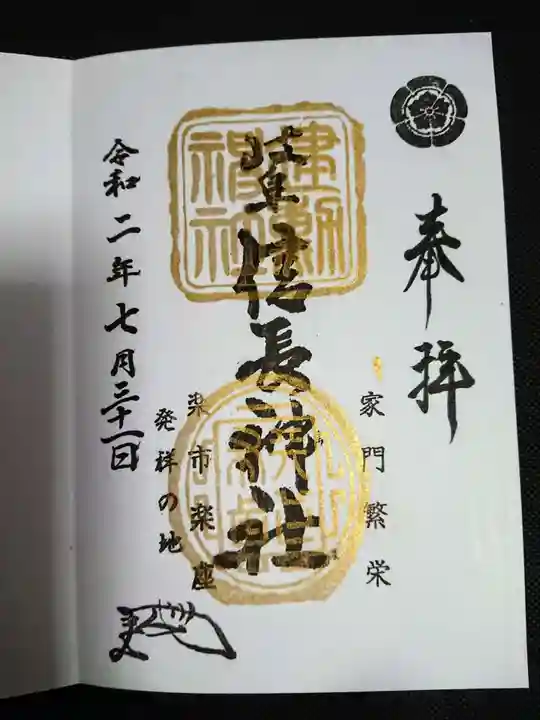 奉拝
家門繁栄
建勲神社
岐阜信長神社
楽市楽座
発祥の地
令和二年七月三十一日